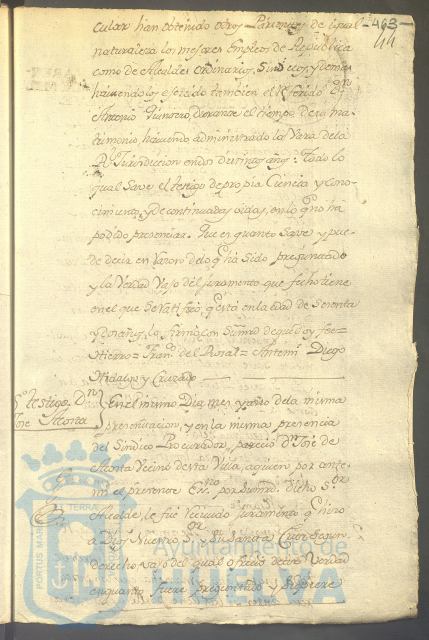 463
44
cular han obtenido otros Parientes de igual
naturaleza los mejores Empleos de Republica
como de Alcaldes Ordinarios, Sindicos, y demas
haviendolos ejercido tambien el referido Dn
Antonio Quintero, durante el tiempo de su ma-
trimonio, haviendo administrado la Vara de la
Rl Jurisdiccion en dos distintos años: Todo lo
qual Save el testigo de propia Ciencia y cono-
cimiento, y de continuadas oidas, en lo q no ha
podido presenciar. Que es quanto Save y pue-
de decir en razon de lo q ha sido preguntado
y la Verdad vajo del juramento que fecho tiene
en el que se ratificó, q está en la edad de Setenta
y dos años, lo firmó con Su mrd de que doy fee=
Hierro= Frano del Rosal= Antemi Diego
Hidalgo y Cruzado
5º testigo Dn
José Acosta
En el mismo Dia, mes, y año de la misma
presentacion, y en la misma presencia
del Sindico Procurador, parecio Dn José de
Acosta Vecino de esta Villa, a quien por ante
mi el presente Esno por su mrd dicho Sor
Alcalde le fue recivido juramento q hizo
a Dios Nuestro Sor y Su Santa Cruz segun
derecho, vajo del qual ofrecio decir Verdad
en quanto fuere preguntado y supiere
PORTUS MARIS
TERRAE
Ayuntamiento de
HUELVA